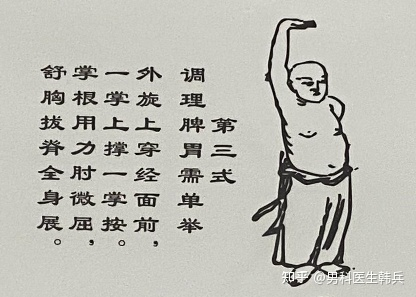 第三式
调理脾胃需单举
外旋上穿经面前，
一掌上撑一掌按。
掌根用力肘微屈，
舒胸拔脊全身展。
知乎 @男科医生韩兵